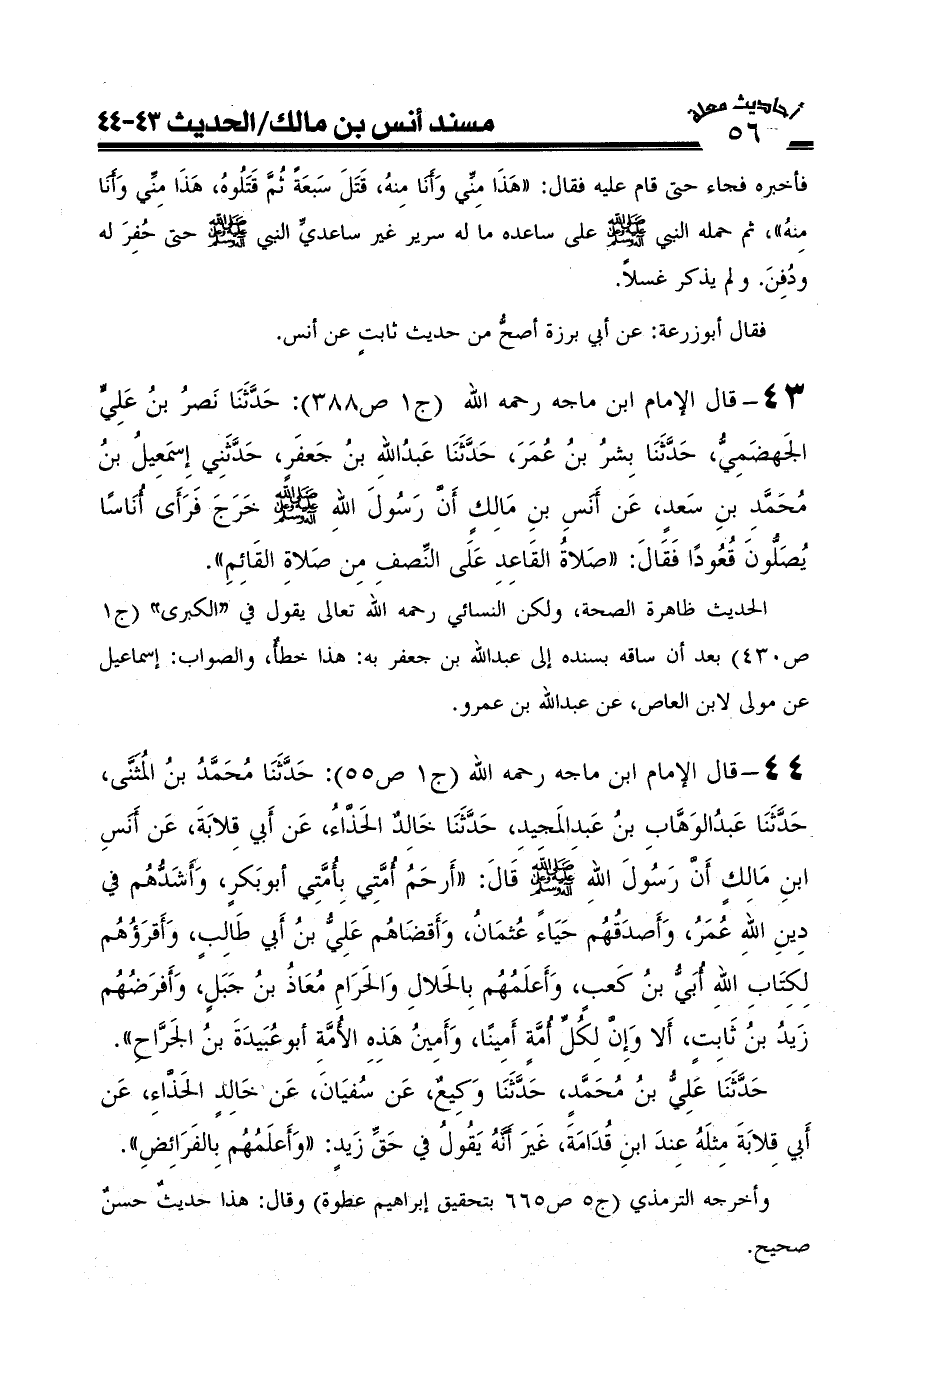 أحاديث معلة
٥٦
مسند أنس بن مالك/الحديث ٤٣-٤٤
فأخبره فجاء حتى قام عليه فقال: «هَذَا مِنِّي وَأَنَا مِنهُ، قَتَلَ سَبعَةً ثُمَّ قَتَلُوهُ، هَذَا مِنِّي وَأَنَا
مِنهُ»، ثم حمله النبي ﷺ على ساعده ما له سرير غير ساعديِّ النبي ﷺ حتى حُفِرَ له
ودُفِنَ. ولم يذكر غسلاً.
فقال أبوزرعة: عن أبي برزة أصحُّ من حديث ثابتٍ عن أنس.
٤٣ – قال الإمام ابن ماجه رحمه الله (ج١ ص٣٨٨): حَدَّثَنَا نَصرُ بنُ عَلِيٍّ
الجَهضَمِيُّ، حَدَّثَنَا بِشرُ بنُ عُمَرَ، حَدَّثَنَا عَبدُاللهِ بنُ جَعفَرٍ، حَدَّثَنِي إِسمَعِيلُ بنُ
مُحَمَّدِ بنِ سَعدٍ، عَن أَنَسِ بنِ مَالِكٍ أَنَّ رَسُولَ اللهِ ﷺ خَرَجَ فَرَأَى أُنَاسًا
يُصَلُّونَ قُعُودًا فَقَالَ: «صَلاةُ القَاعِدِ عَلَى النِّصفِ مِن صَلاةِ القَائِمِ».
الحديث ظاهرة الصحة، ولكن النسائي رحمه الله تعالى يقول في «الكبرى» (ج١
ص٤٣٠) بعد أن ساقه بسنده إلى عبدالله بن جعفر به: هذا خطأٌ، والصواب: إسماعيل
عن مولى لابن العاص، عن عبدالله بن عمرو.
٤٤ – قال الإمام ابن ماجه رحمه الله (ج١ ص٥٥): حَدَّثَنَا مُحَمَّدُ بنُ المُثَنَّى،
حَدَّثَنَا عَبدُالوَهَّابِ بنُ عَبدِالمَجِيدِ، حَدَّثَنَا خَالِدٌ الحَذَّاءُ، عَن أَبِي قِلابَةَ، عَن أَنَسِ
ابنِ مَالِكٍ أَنَّ رَسُولَ اللهِ ﷺ قَالَ: «أَرحَمُ أُمَّتِي بِأُمَّتِي أبوبَكرٍ، وَأَشَدُّهُم فِي
دِينِ اللهِ عُمَرُ، وَأَصدَقُهُم حَيَاءً عُثمَانُ، وَأَقضَاهُم عَلِيُّ بنُ أَبِي طَالِبٍ، وَأَقرَؤُهُم
لِكِتَابِ اللهِ أُبَيُّ بنُ كَعبٍ، وَأَعلَمُهُم بِالحَلالِ وَالحَرَامِ مُعَاذُ بنُ جَبَلٍ، وَأَفرَضُهُم
زَيدُ بنُ ثَابِتٍ، أَلا وَإِنَّ لِكُلِّ أُمَّةٍ أَمِينًا، وَأَمِينُ هَذِهِ الأُمَّةِ أبوعُبَيدَةَ بنُ الجَرَّاحِ».
حَدَّثَنَا عَلِيُّ بنُ مُحَمَّدٍ، حَدَّثَنَا وَكِيعٌ، عَن سُفيَانَ، عَن خَالِدٍ الحَذَّاءِ، عَن
أَبِي قِلابَةَ مِثلَهُ عِندَ ابنِ قُدَامَةَ، غَيرَ أَنَّهُ يَقُولُ فِي حَقِّ زَيدٍ: «وَأَعلَمُهُم بِالفَرَائِضِ».
وأخرجه الترمذي (ج٥ ص٦٦٥ بتحقيق إبراهيم عطوة) وقال: هذا حديثٌ حسنٌ
صحيح.